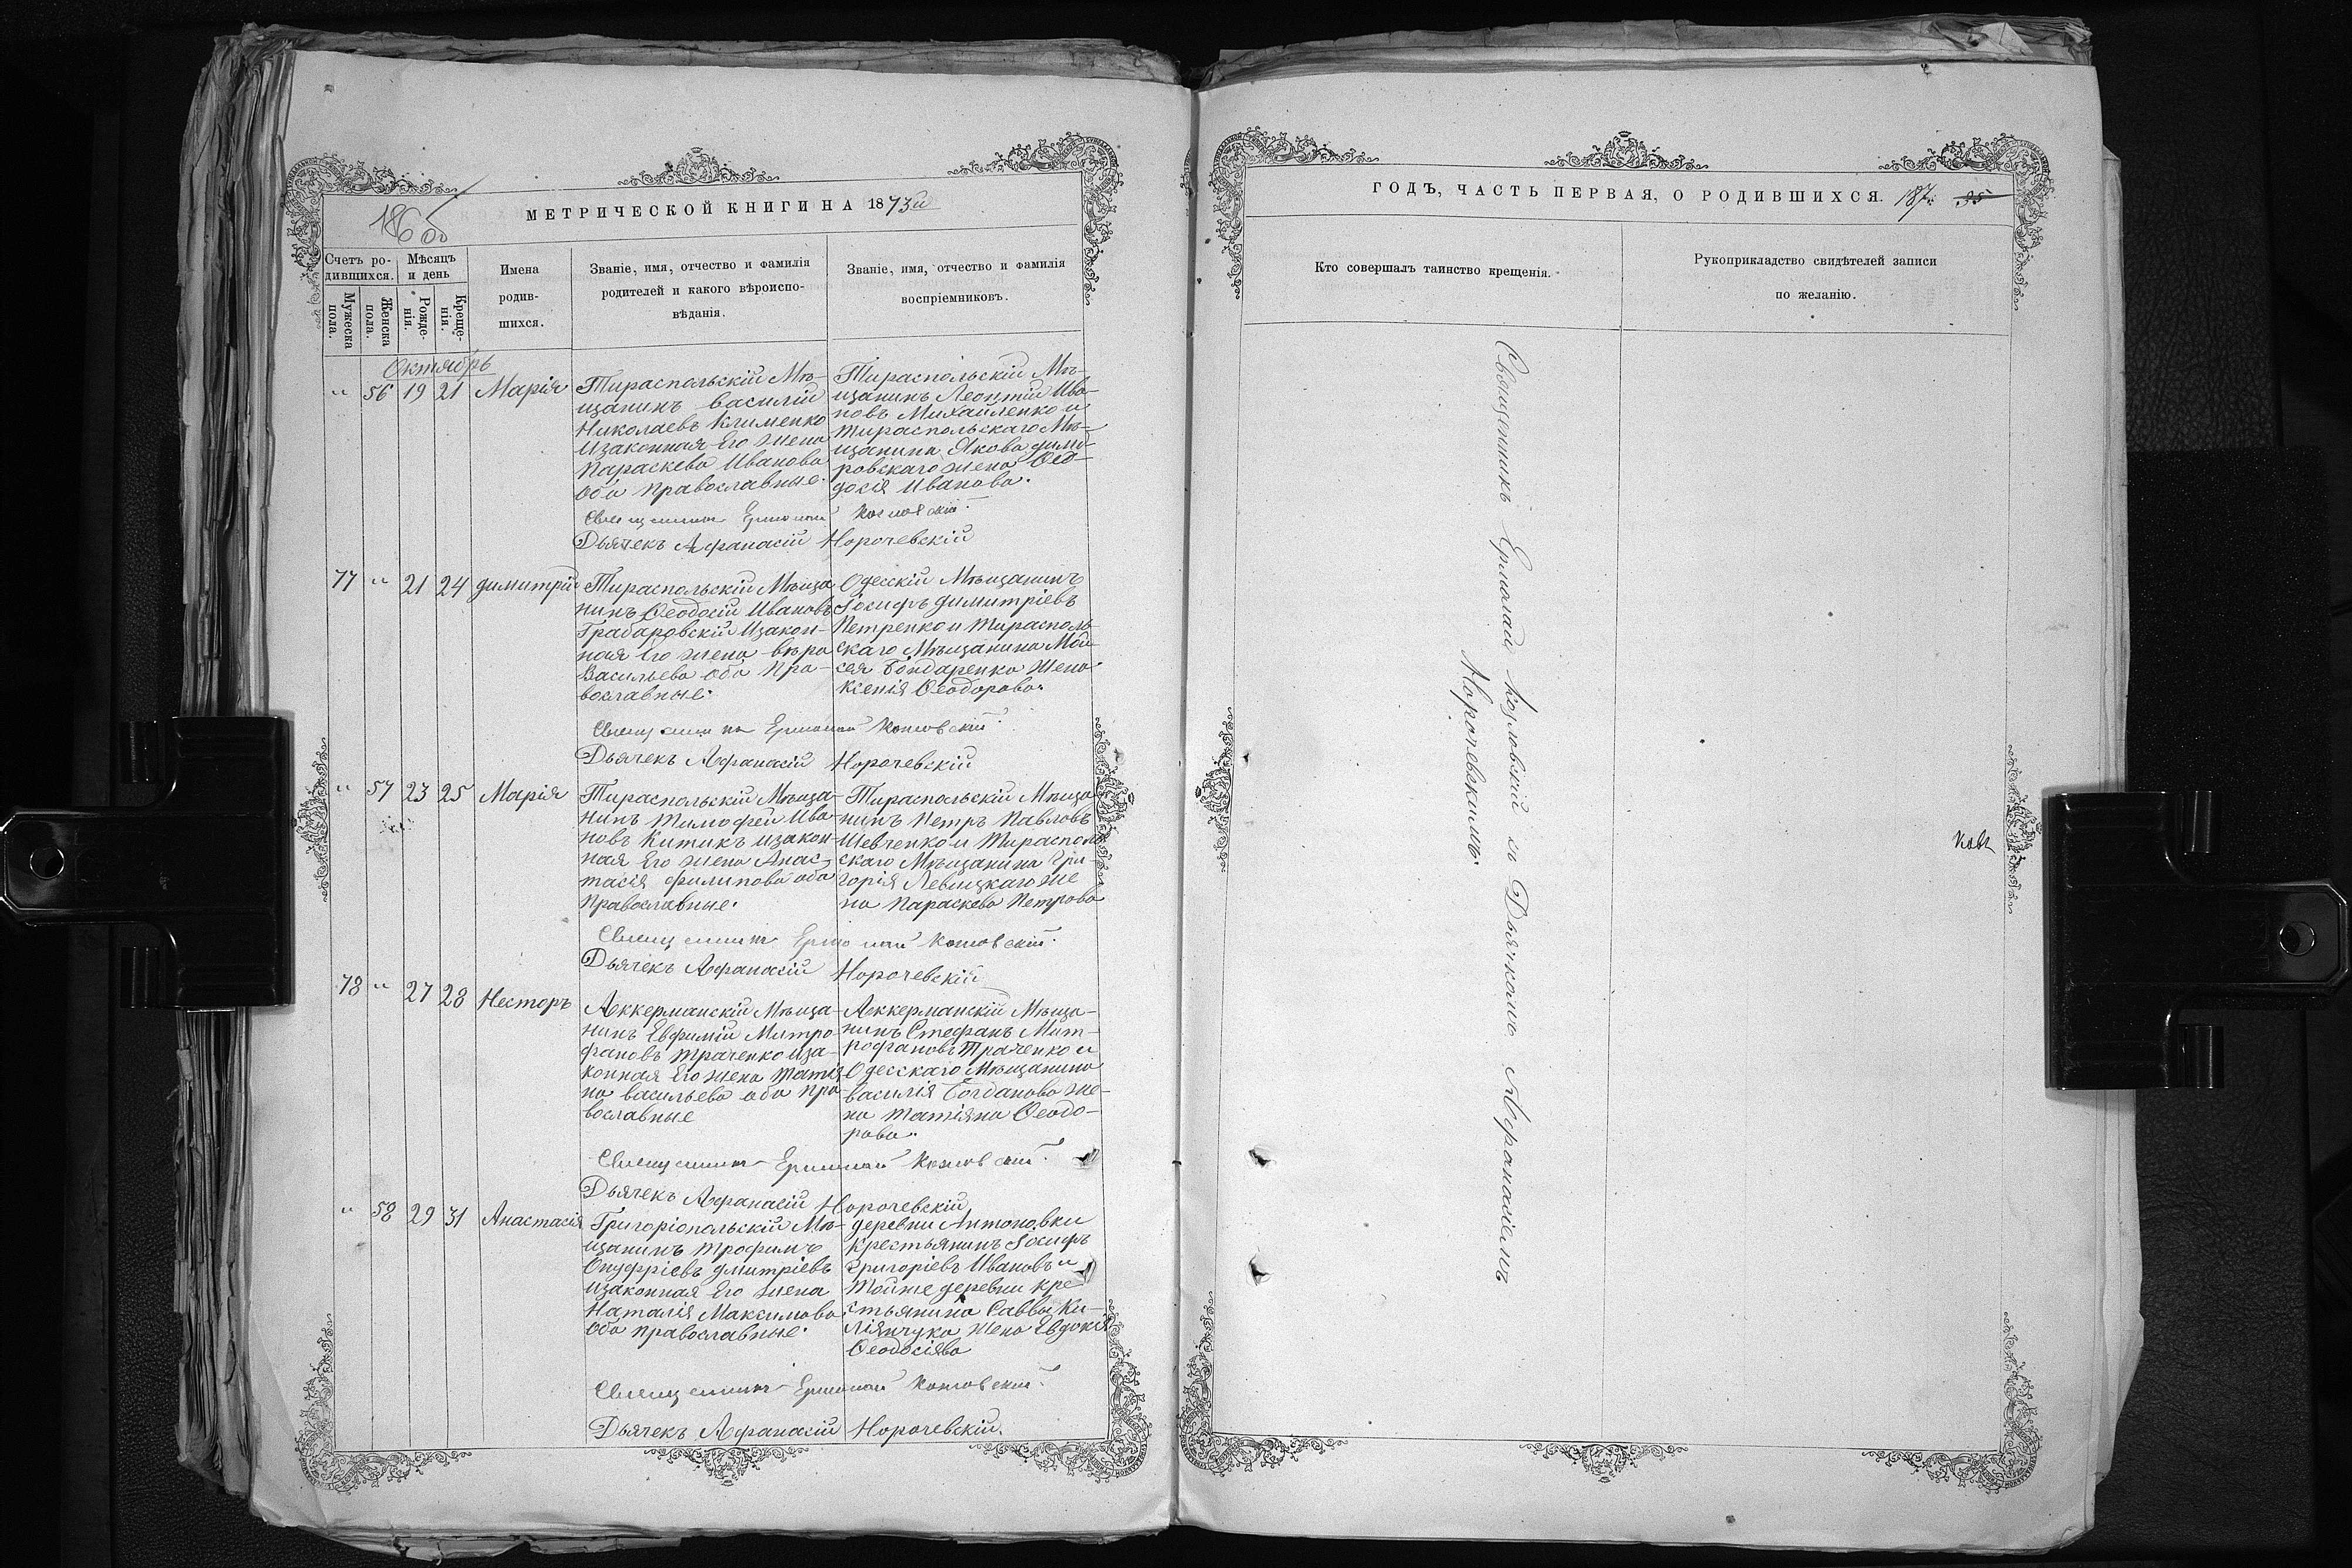 186 об
МЕТРИЧЕСКОЙ КНИГИ НА 1873й
Счетъ ро-
дившихся.
Мѣсяцъ
и день
Мужеска
пола.
Женска
пола.
Рожде-
нія.
Креще-
нія.
Имена
родив-
шихся.
Званіе, имя, отчество и фамилія
родителей и какого вѣроиспо-
вѣданія.
Званіе, имя, отчество и фамилія
воспріемниковъ.
Октябрь
" 56 19 21 Марія
Тираспольскій Мѣ-
щанинъ василій
Николаевъ Клименко
Изаконная Его жена
Параскева Иванова
оба Православные.
Тираспольскій Мѣ-
щанинъ Леонтій Ива-
новъ Михайленко и
Тираспольскаго Мѣ-
щанина Якова димит-
ровскаго жена Ѳео-
досія Иванова.
Священникъ Ермолай Козловскій.
Дьячекъ Аѳанасій Норочевскій
77 " 21 24 димитрій
Тираспольскій Мѣща
нинъ Ѳеодосій Ивановъ
Грабаровскій Изакон-
ная Его жена вѣра
Васильева оба Пра-
вославные.
Одесскій Мѣщанинъ
Іосифъ димитріевъ
Петренко и тирасполь-
скаго Мѣщанина Мои-
сея Бондаренка жена
Ксенія Ѳеодорова
Священникъ Ермолай Козловскій.
Дьячекъ Аѳанасій Норочевскій
" 57 23 25 Марія
Тираспольскій Мѣща-
нинъ Тимофей Ива-
новъ Китикъ изакон-
ная Его жена Анас-
тасія филипова оба
Православные.
Тираспольскій Мѣща
нинъ Петръ Павловъ
Шевченко и Тирасполь
скаго Мѣщанина Гри-
горія Левицкаго же
на Параскева Петрова
Священникъ Ермолай Козловскій.
Дьячекъ Аѳанасій Норочевскій
78 " 27 28 Несторъ
Аккерманскій Мѣща-
нинъ Евфимій Митро-
фановъ траченко иза-
конная Его жена татія
на васильева оба пра
вославные
Аккерманскій Мѣща-
нинъ Стефанъ Мит-
рофановъ Траченко и
Одесскаго Мѣщанина
василія Богданова же-
на татіяна Ѳеодо-
рова.
Священникъ Ермолай Козловскій.
Дьячекъ Аѳанасій Норочевскій
" 58 29 31 Анастасія
Григоріопольскій Мѣ-
щанинъ трофимъ
Онуфріевъ дмитріевъ
изаконная Его жена
Наталія Максимова
оба православные.
деревни Антоновки
Крестьянинъ Іосифъ
Григоріевъ Ивановъ и
тойже деревни кре
стьянина Саввы Ки-
ліянчука жена Евдокія
Ѳеодосіява
Священникъ Ермолай Козловскій.
Дьячекъ Аѳанасій Норочевскій.
ГОДЪ, ЧАСТЬ ПЕРВАЯ, О РОДИВШИХСЯ. 187
35
Кто совершалъ таинство крещенія.
Рукоприкладство свидѣтелей записи
по желанію.
Священникъ Ермолай Козловскій съ Дьячкомъ Аѳанасіемъ
Норочевскимъ.